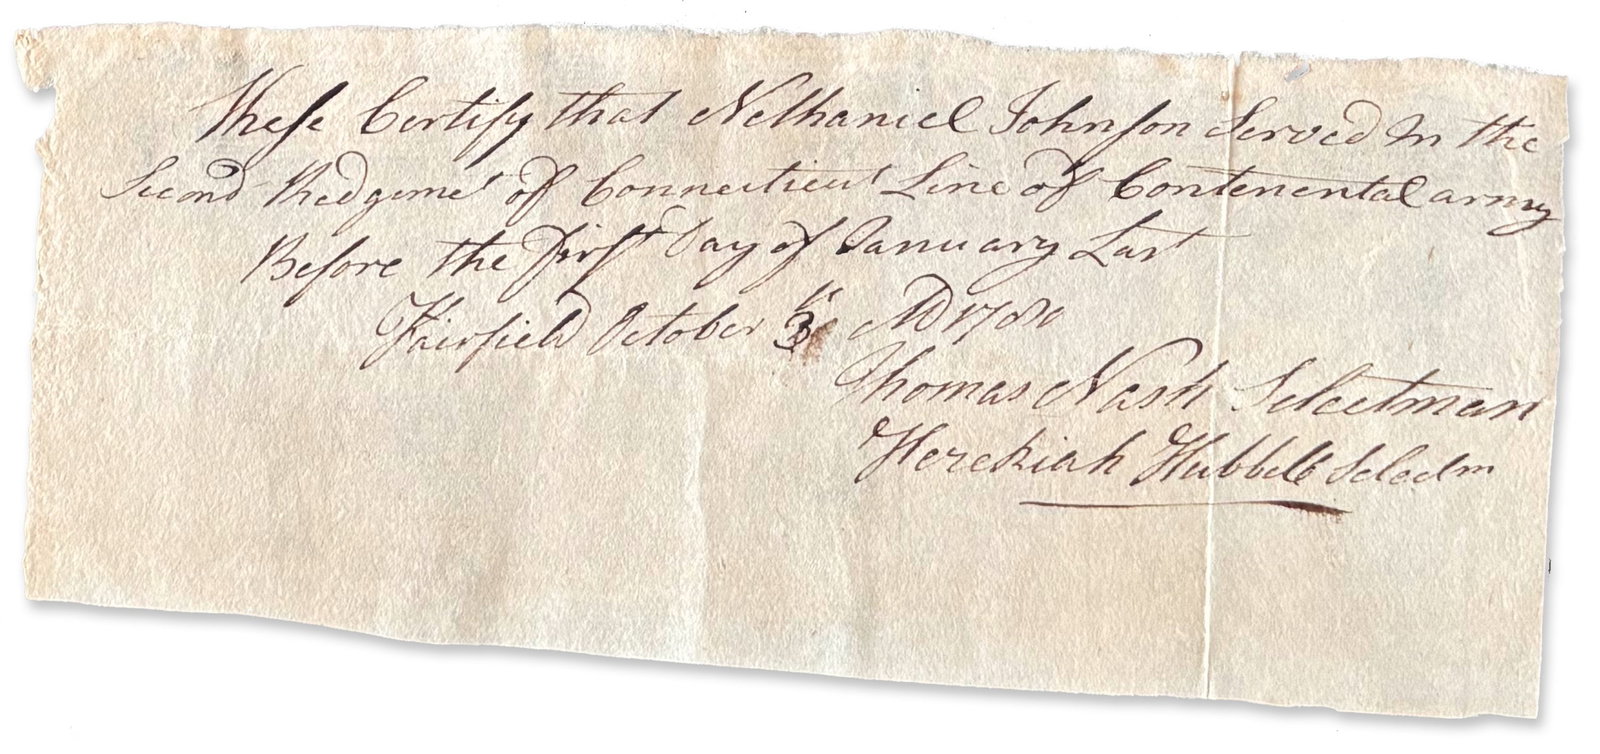 These Certify that Nethaniel Johnson Served In the
Second Redgemet of Connecticut Line of Contenental army
Before the first Day of January Last
Fairfield October 3 AD 1780
Thomas Nash Selectman
Hezekiah Hubbell Selectm